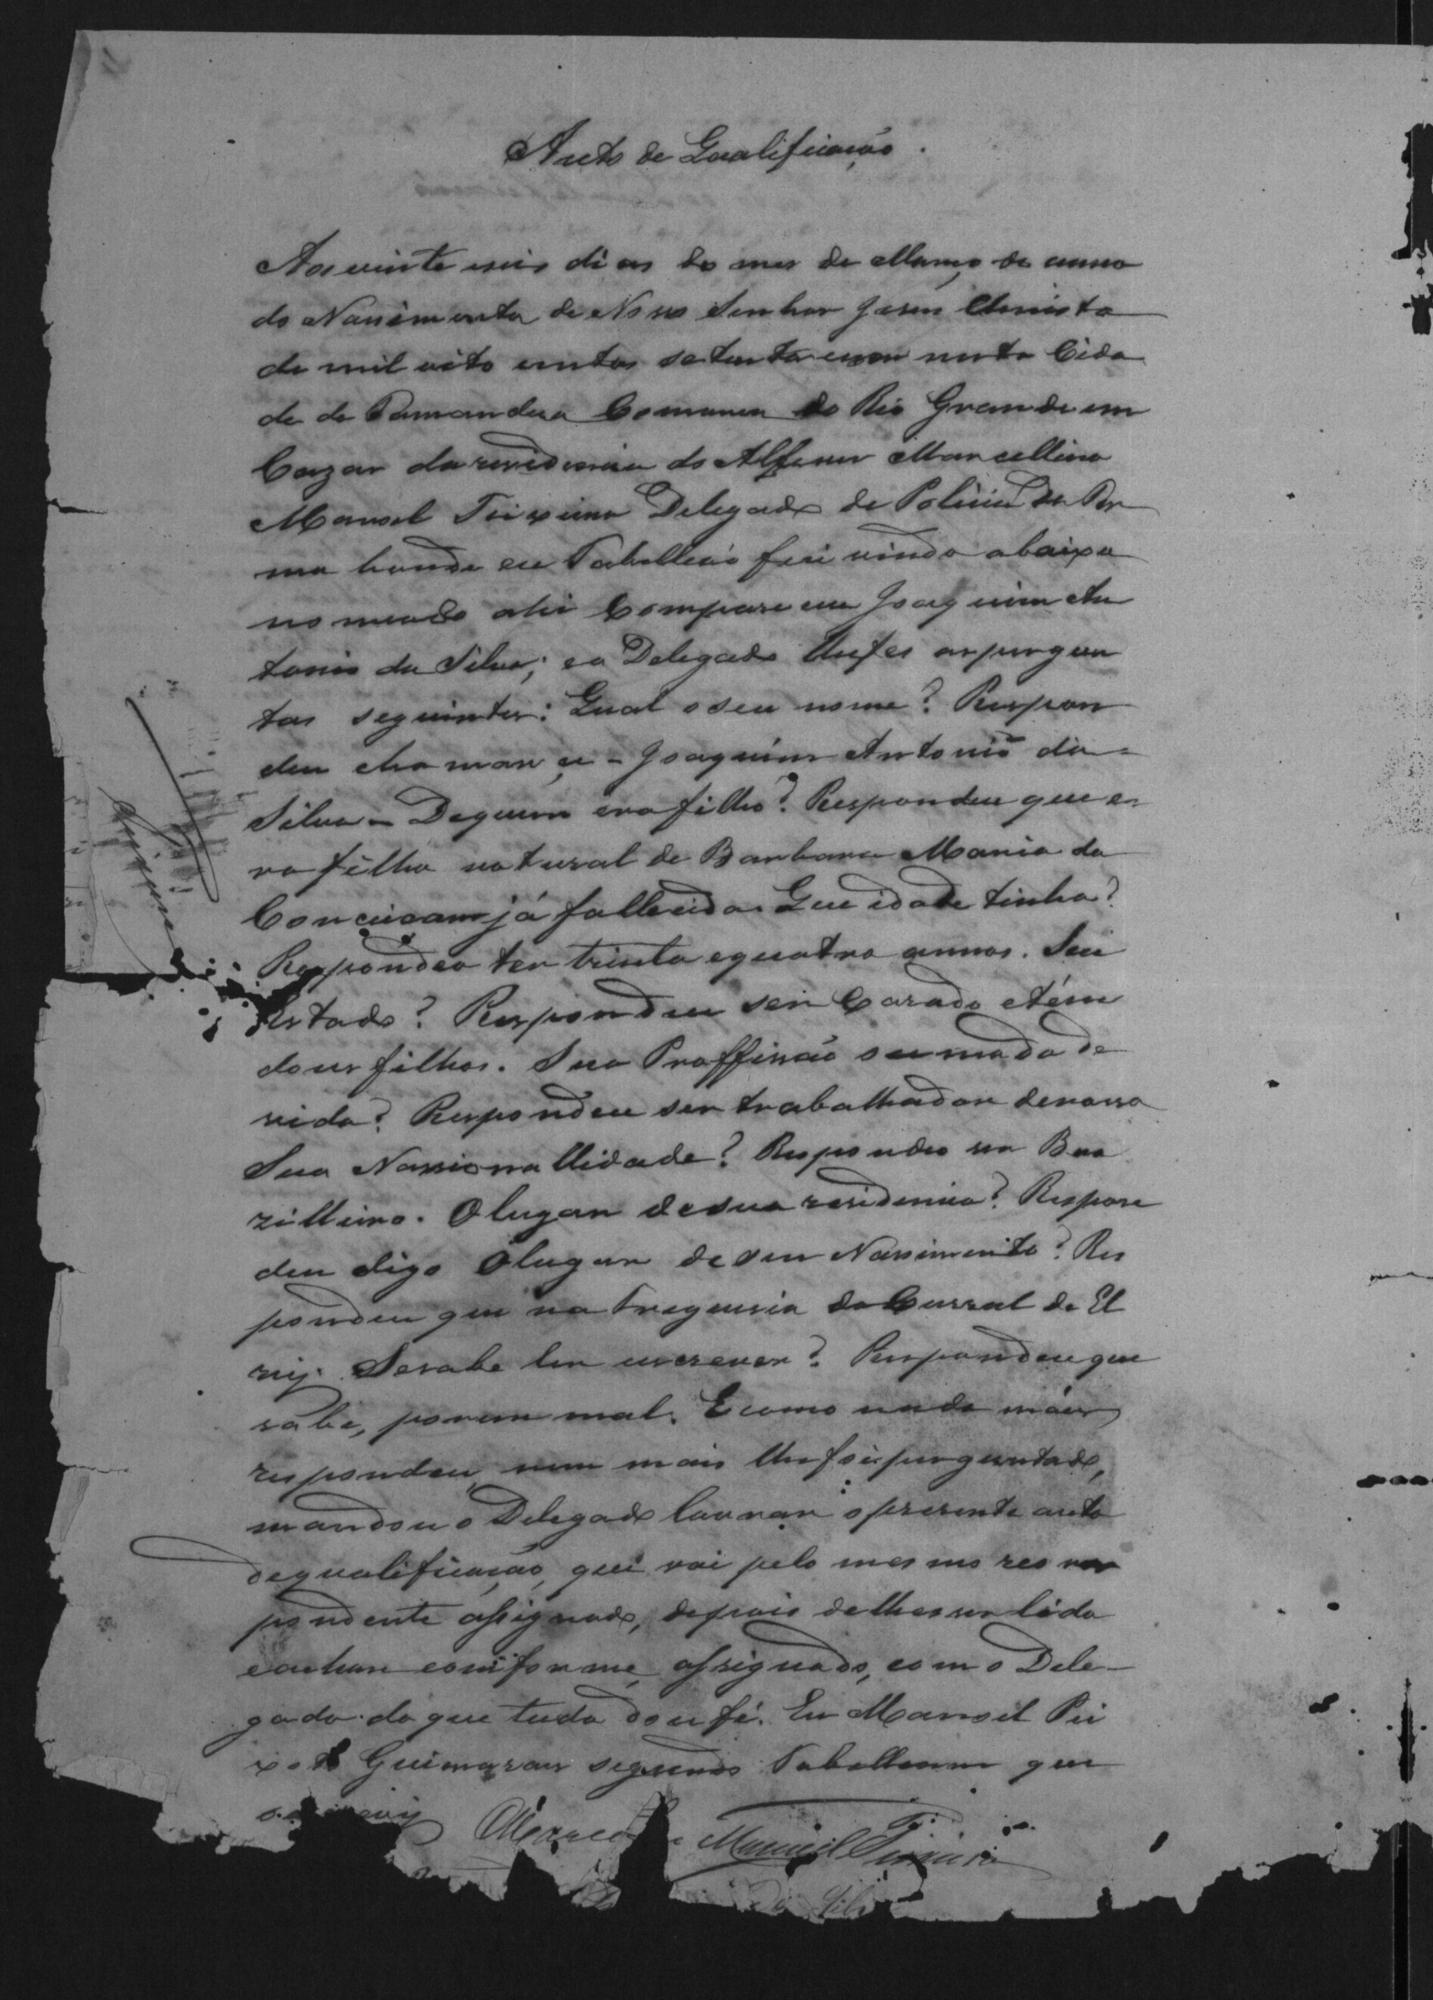 Auto de Qualificação.
Aos vinte seis dias do mes de Março do anno
do Nassimento de Nosso Senhor Jesus Christo
de mil oito centos setenta nesta Cida
de de Comarca do Rio Grande em
Cazas da residencia do Alferes Marcellino
Manoel Teixeira Delegado de Policia do Ter
mo honde eu Tabelleão fui vindo abaixo
nomeado ahi Compareceu Joaquim An
tonio da Silva; e o Delegado lhe fes as pergun
tas seguintes: Qual o seu nome? Respon
deu chamar çe - Joaquim Antonio da =
Silva - De quem era filho? Respondeu que e-
ra filho natural de Barbara Maria da
Conceicam já fallecida. Que idade tinha?
Respondeo ter trinta e quatro annos. Seu
Estado? Respondeu ser Casado e tem
dous filhos. Sua Proffissão ou modo de
vida? Respondeu ser trabalhador de rossa
Sua Nassionallidade? Respondeo ser Bra
zilleiro. O lugar de sua residencia? Respon
deu digo O lugar de seu Nassimento? Res
pondeu que na Freguesia do Curral de El
rij. Se sabe ler escrever? Respondeu que
sabe, porem mal. E como nada máis
respondeu, nem mais lhe foi perguntado,
mandou o Delegado lavrar o presente auto
de qualificação, que vai pelo mesmo res
pondente assignado, depois de lhe ser lido
e achar comforme, assignado, com o Dele-
gado. do que tudo dou fé. Eu Manoel Pei
xoto Guimaraes segundo Tabelleam que
Manoel Teixeira
da Silv